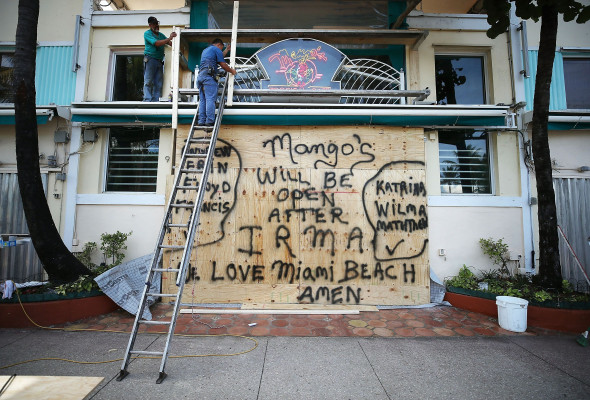 Mango's
WILL BE
OPEN
AFTER
IRMA
LOVE Miami BEACH
AMEN
ERIN
FRANCIS
KATRINA
WILMA
MATTHEW